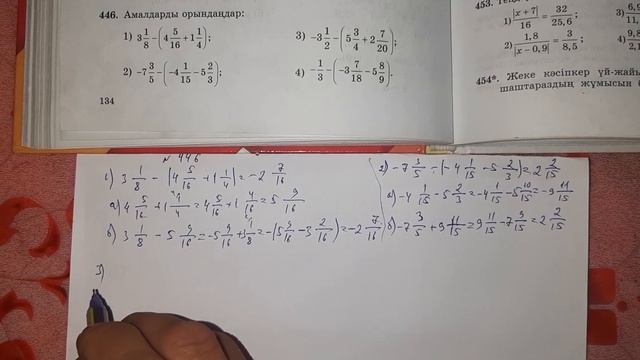 446. Амалдарды орындаңдар:
1) 3 1/8 − (4 5/16 + 1 1/4);
3) −3 1/2 − (5 3/4 + 2 7/20);
2) −7 3/5 − (−4 1/15 − 5 2/3);
4) −1/3 − (−3 7/18 − 5 8/9).
134
453.
1) |x + 7|/16 = 32/25,6;
3)
2) 1,8/|x − 0,9| = 3/8,5;
4)
454*. Жеке кәсіпкер үй-жай
шаштараздың жұмысын
№ 446
1) 3 1/8 − (4 5/16 + 1 1/4) = −2 7/16
а) 4 5/16 + 1 1/4 = 4 5/16 + 1 4/16 = 5 9/16
б) 3 1/8 − 5 9/16 = −5 9/16 + 3 1/8 = −(5 9/16 − 3 2/16) = −2 7/16
2) −7 3/5 − (−4 1/15 − 5 2/3) = 2 2/15
а) −4 1/15 − 5 2/3 = −4 1/15 − 5 10/15 = −9 11/15
б) −7 3/5 + 9 11/15 = 9 11/15 − 7 9/15 = 2 2/15
3)